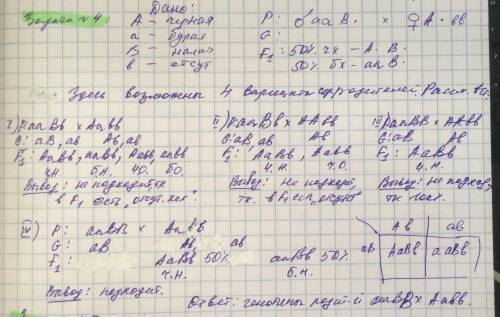 Задача №4
Дано:
А – черная
а – бурая
В – налич
в – отсут
Р: ♂ааВ. × ♀А. вв
G:
F₁: 50% чх – А. В.
50% бх – ааВ.
Здесь возможны 4 варианта родителей. Рассм. все
I) РааВв × Аавв
G: аВ, ав Ав, ав
F₁: АаВв, ааВв, Аавв, аавв
ч.н. б.н. ч.о. б.о.
Вывод: не подходит, тк
в F₁ есть „отсут. хох"
II) РааВв × ААвв
G: аВ, ав Ав
F₁: АаВв, Аавв
ч.н. ч.о.
Вывод: не подходит,
тк. в F₁ есть „отсутст"
III) РааВВ × ААвв
G: аВ Ав
F₁: АаВв
ч.н.
Вывод: не подход,
тк
IV) Р: ааВВ × Аавв
G: аВ Ав, ав
F₁: АаВв 50% ааВв 50%
ч.н. б.н.
Ав ав
аВ АаВв ааВв
Вывод: подходит.
Ответ: генотипы родит-й ааВВ × Аавв.